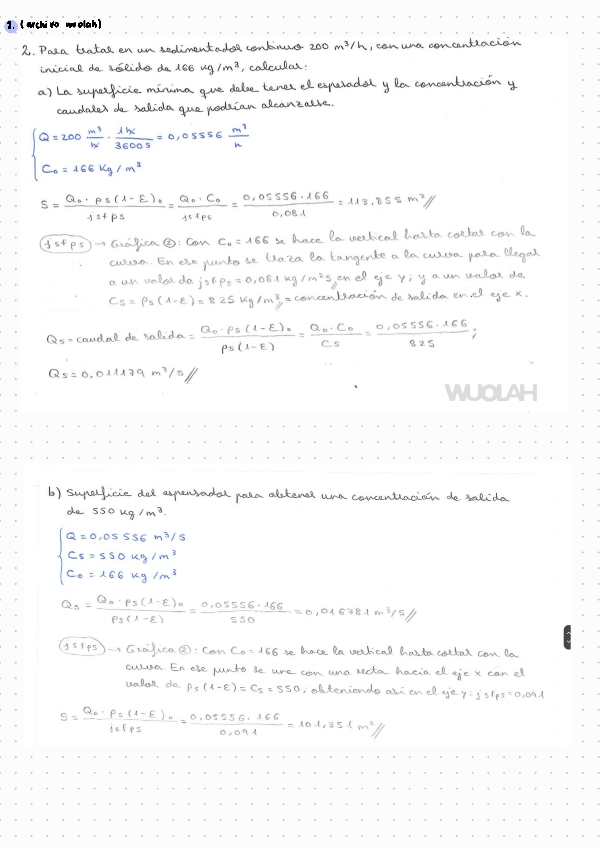 1. (archivo wuolah)
2. Para tratar en un sedimentador continuo 200 m³/h, con una concentración
inicial de sólido de 166 kg/m³, calcular:
a) La superficie mínima que debe tener el espesador y la concentración y
caudales de salida que podrían alcanzarse.
Q = 200 m³/h · 1h/3600s = 0,05556 m³/h
C₀ = 166 Kg/m³
S = Q₀·ρs(1-ε)₀/jsfρs = Q₀·C₀/jsfρs = 0,05556·166/0,081 = 113,855 m²//
jsfρs → Gráfica ②: Con C₀ = 166 se hace la vertical hasta cortar con la
curva. En ese punto se traza la tangente a la curva para llegar
a un valor de jsfρs = 0,081 kg/m²s, en el eje y; y a un valor de
Cs = ρs(1-ε) = 825 Kg/m³ = concentración de salida en el eje x.
Qs = caudal de salida = Q₀·ρs(1-ε)₀/ρs(1-ε) = Q₀·C₀/Cs = 0,05556·166/825;
Qs = 0,011179 m³/s//
WUOLAH
b) Superficie del espesador para obtener una concentración de salida
de 550 kg/m³.
Q = 0,05556 m³/s
Cs = 550 kg/m³
C₀ = 166 kg/m³
Qs = Q₀·ρs(1-ε)₀/ρs(1-ε) = 0,05556·166/550 = 0,016781 m³/s//
jsfρs → Gráfica ②: Con C₀ = 166 se hace la vertical hasta cortar con la
curva. En ese punto se une con una recta hacia el eje x con el
valor de ρs(1-ε) = Cs = 550, obteniendo así en el eje y: jsfρs = 0,091
S = Q₀·ρs(1-ε)₀/jsfρs = 0,05556·166/0,091 = 101,351 m²//